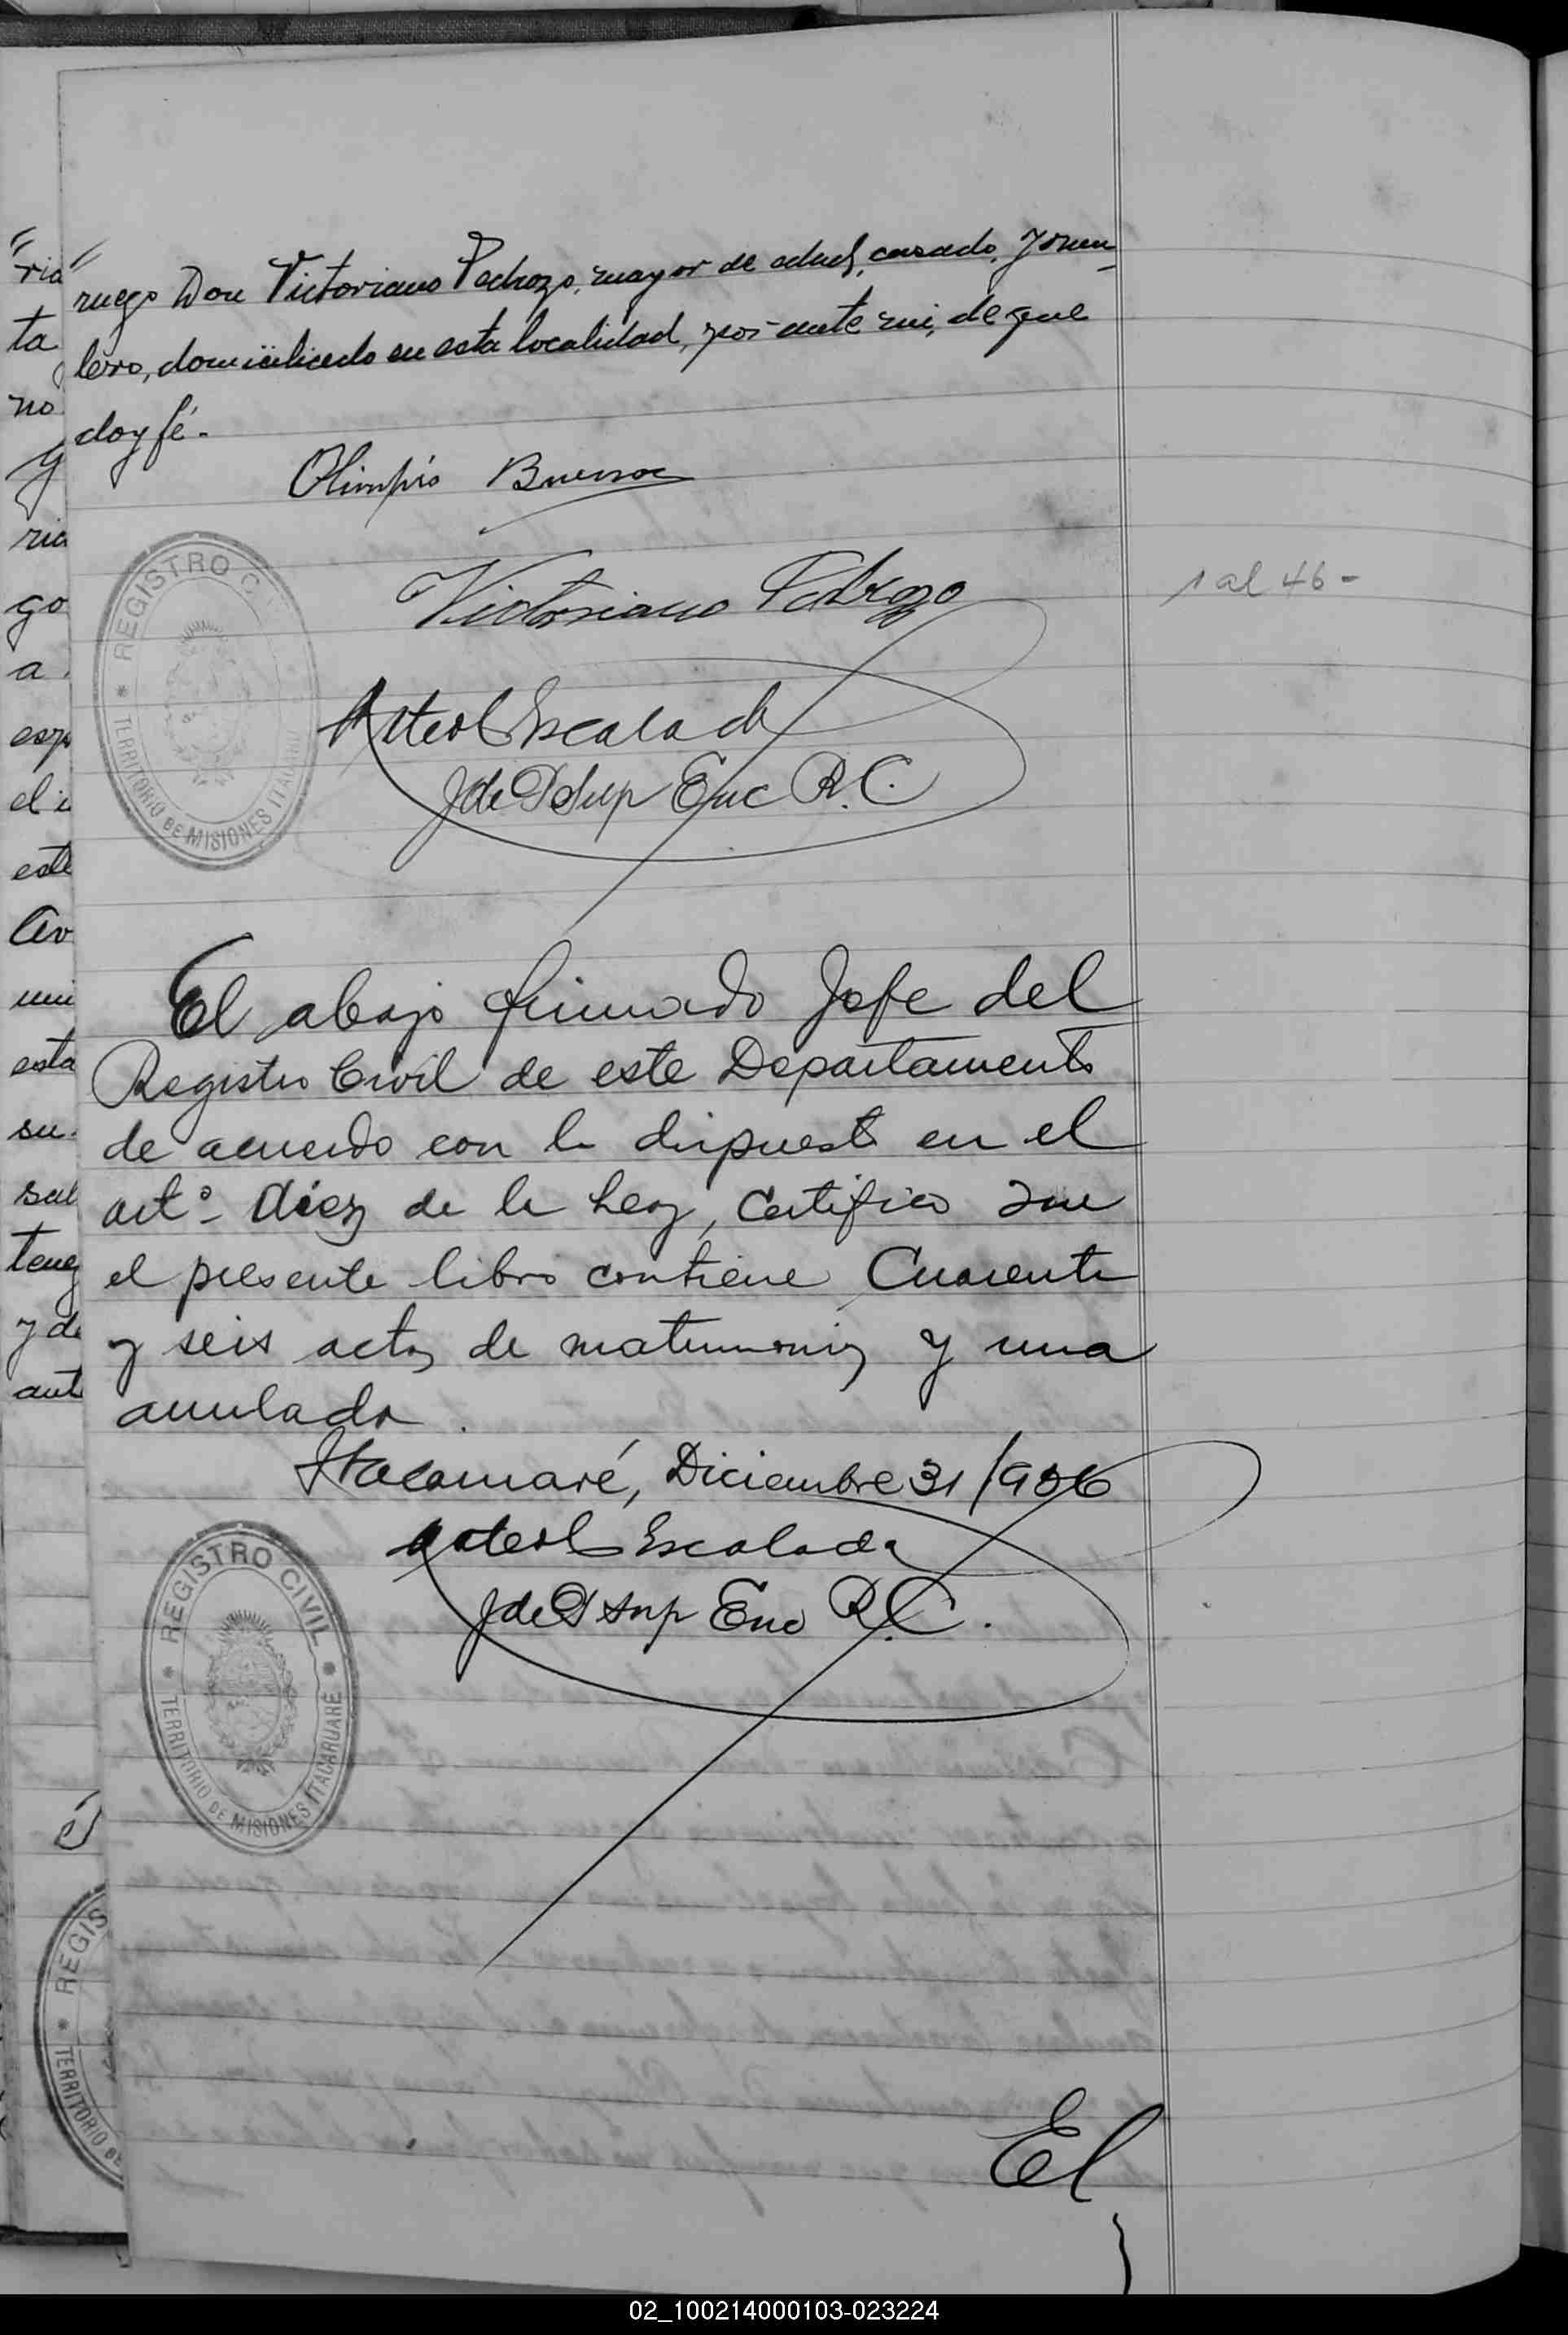 ruego Don Victoriano Pedrozo, mayor de edad, casado, Jorna-
lero, domicilicado en esta localidad, por ante mi, de que
doy fé.-
Olimpio
Victoriano Pedrozo
Escalada
J de P Sup Enc R.C.
1 al 46-
REGISTRO C
TERRITORIO DE MISIONES ITACARU
El abajo firmado Jefe del
Registro Civil de este Departamento
de acuerdo con lo dispuesto en el
art.º diez de la Ley, Certifico que
el presente libro contiene Cuarenta
y seis actas de matrimonios y una
anulada.
Itacaruaré, Diciembre 31/906
Escalada
J de P Sup Enc R.C.
REGISTRO CIVIL
TERRITORIO DE MISIONES ITACARUARÉ
El
ria
ta
no
y
ria
go
a
esp
el i
este
Av
mi
esta
su
sal
teng
y de
ant
REGIS
TERRITORIO DE
02_100214000103-023224